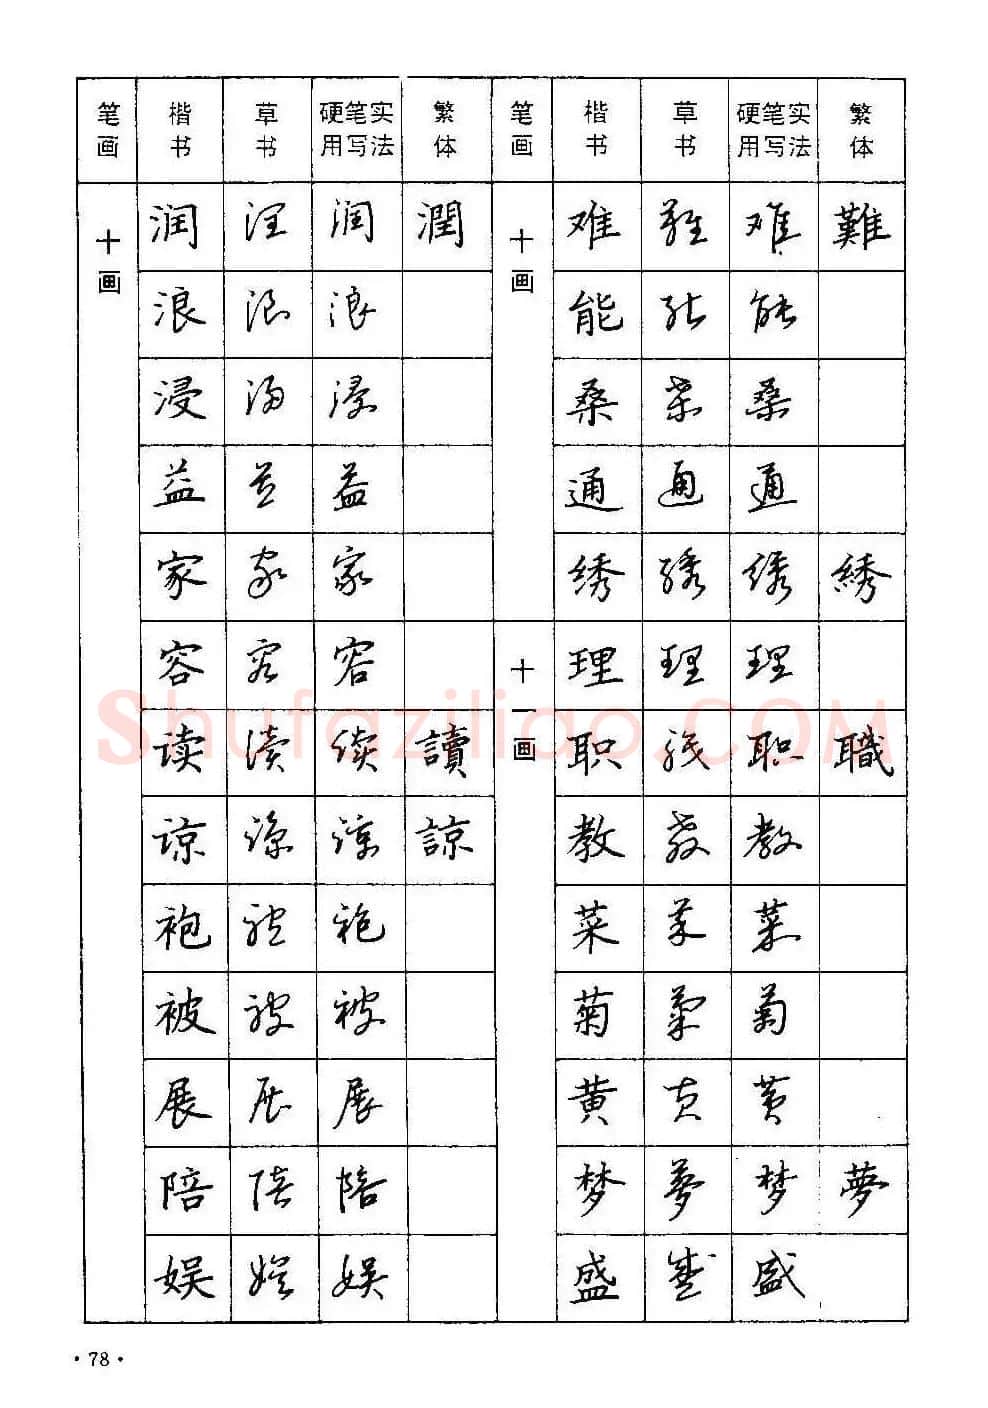 笔画 楷书 草书 硬笔实用写法 繁体 笔画 楷书 草书 硬笔实用写法 繁体
十画 润 润 润 潤 十画 难 難 难 難
浪 浪 浪 能 能 能
浸 浸 浸 桑 桑 桑
益 益 益 通 通 通
家 家 家 绣 绣 绣 綉
容 容 容 十一画 理 理 理
读 读 读 讀 职 职 职 職
谅 谅 谅 諒 教 教 教
袍 袍 袍 菜 菜 菜
被 被 被 菊 菊 菊
展 展 展 黄 黄 黄
陪 陪 陪 梦 夢 梦 夢
娱 娱 娱 盛 盛 盛
Shufaziliao.COM
·78·